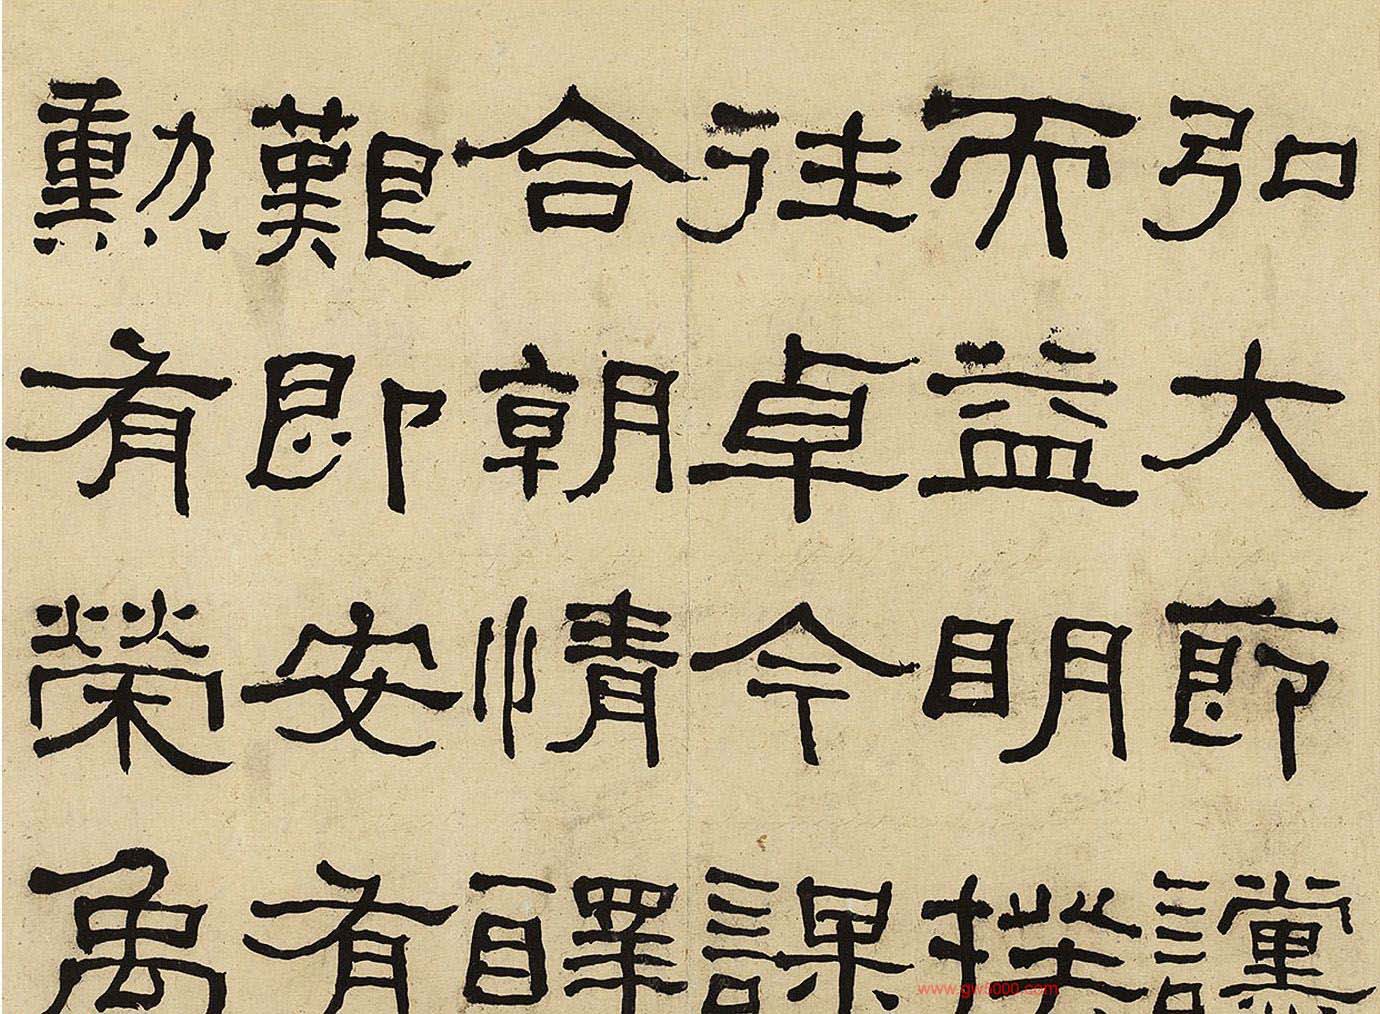 弘大節讜
而益明撲
往卓今課
合朝情醳
難即安有
勳有榮禹
www.gw5000.com